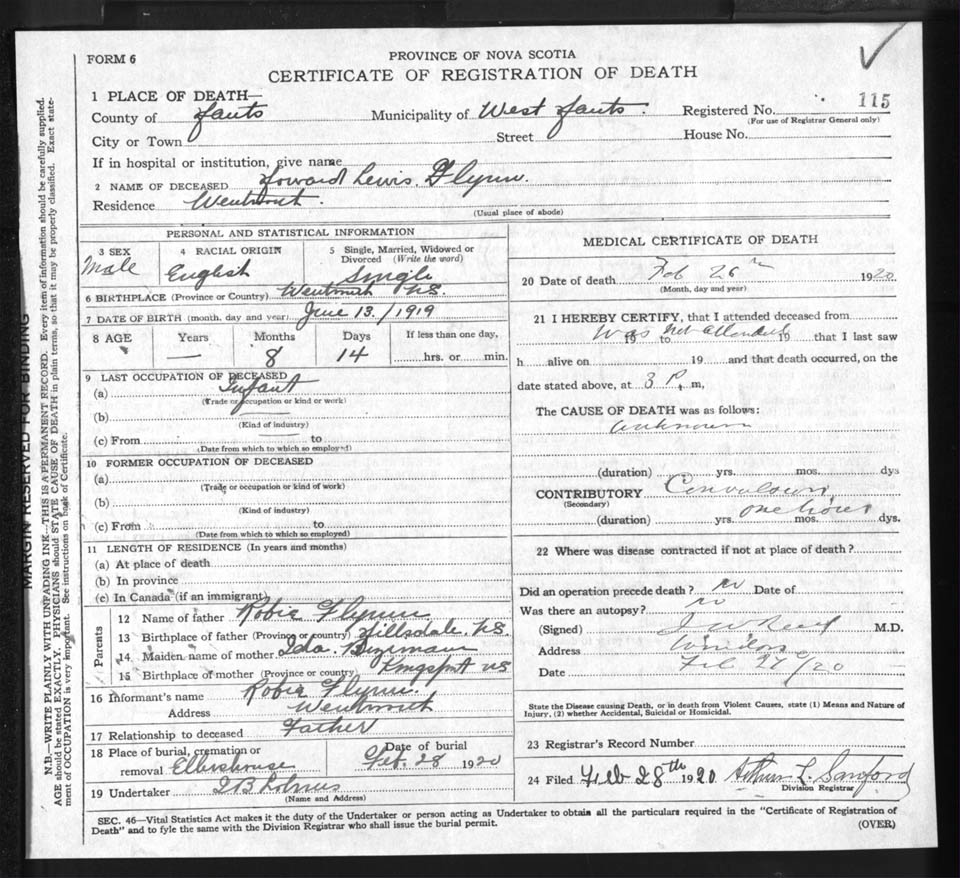 FORM 6
PROVINCE OF NOVA SCOTIA
CERTIFICATE OF REGISTRATION OF DEATH
1 PLACE OF DEATH—
County of Hants Municipality of West Hants. Registered No. 115
(For use of Registrar General only)
City or Town Street House No.
If in hospital or institution, give name
2 NAME OF DECEASED Howard Lewis Flynn.
Residence Wentworth.
(Usual place of abode)
PERSONAL AND STATISTICAL INFORMATION
3 SEX Male
4 RACIAL ORIGIN English
5 Single, Married, Widowed or Divorced (Write the word) Single
6 BIRTHPLACE (Province or Country) Wentworth N.S.
7 DATE OF BIRTH (month, day and year) June 13/1919
8 AGE Years — Months 8 Days 14 If less than one day, hrs. or min.
9 LAST OCCUPATION OF DECEASED
(a) Infant
(Trade or occupation or kind or work)
(b) —
(Kind of industry)
(c) From — to
(Date from which to which so employed)
10 FORMER OCCUPATION OF DECEASED
(a)
(Trade or occupation or kind of work)
(b)
(Kind of industry)
(c) From to
(Date from which to which so employed)
11 LENGTH OF RESIDENCE (In years and months)
(a) At place of death
(b) In province
(c) In Canada (if an immigrant)
Parents
12 Name of father Robie Flynn
13 Birthplace of father (Province or country) Hillsdale N.S.
14 Maiden name of mother Ida
15 Birthplace of mother (Province or country) Kingsport N.S.
16 Informant's name Robie Flynn.
Address Wentworth
17 Relationship to deceased Father
18 Place of burial, cremation or removal Ellershouse Date of burial Feb. 28 1920
19 Undertaker
(Name and Address)
MEDICAL CERTIFICATE OF DEATH
20 Date of death Feb 26th 1920
(Month, day and year)
21 I HEREBY CERTIFY, that I attended deceased from
Was not attended
19 to 19 that I last saw
h alive on 19 and that death occurred, on the
date stated above, at 3 P. m,
The CAUSE OF DEATH was as follows:
unknown
(duration) yrs. mos. dys
CONTRIBUTORY Convulsion,
(Secondary) one hour
(duration) yrs. mos. dys.
22 Where was disease contracted if not at place of death?
Did an operation precede death? no Date of
Was there an autopsy? no
(Signed) J W Reid M.D.
Address Windsor
Date Feb 27/20
State the Disease causing Death, or in death from Violent Causes, state (1) Means and Nature of Injury, (2) whether Accidental, Suicidal or Homicidal.
23 Registrar's Record Number
24 Filed Feb 28th 1920 Arthur L. Sanford
Division Registrar
SEC. 46—Vital Statistics Act makes it the duty of the Undertaker or person acting as Undertaker to obtain all the particulars required in the "Certificate of Registration of
Death" and to fyle the same with the Division Registrar who shall issue the burial permit.
(OVER)
MARGIN RESERVED FOR BINDING
N.B.—WRITE PLAINLY WITH UNFADING INK—THIS IS A PERMANENT RECORD. Every item of information should be carefully supplied.
AGE should be stated EXACTLY. PHYSICIANS should STATE CAUSE OF DEATH in plain terms, so that it may be properly classified. Exact state-
ment of OCCUPATION is very important. See instructions on back of Certificate.